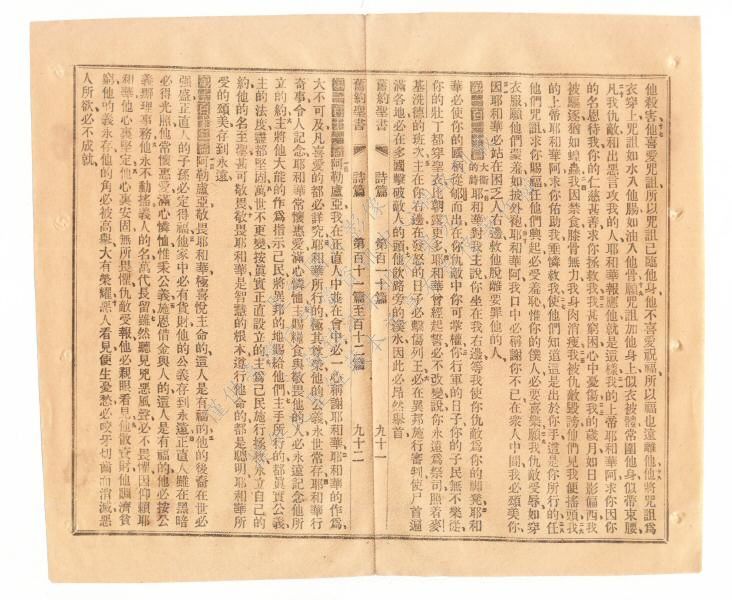 他殺害他喜愛咒詛所以咒詛已臨他身他不喜愛祝福所以福也遠離他他將咒詛爲
衣穿上咒詛如水入他腸如油入他骨願咒詛加他身上似衣被體常圍他身似帶束腰
凡我仇敵和出惡言攻我的人耶和華報應他就是這樣我的上帝耶和華阿求你因你
的名恩待我你的仁慈甚善求你拯救我我甚窮困心中憂傷我的歲月如日影偏西我
被驅逐猶如蝗蟲我因禁食膝骨無力我身肉消瘦我被仇敵毀謗他們見我便搖頭我
的上帝耶和華阿求你佑助我垂憐救我使他們知道這是出於你手這是你所行的任
他們咒詛求你賜福任他們興起必受羞恥惟你的僕人必要喜樂願我仇敵受辱如穿
衣服願他們蒙羞如披外袍耶和華阿我口中必稱謝你不已在衆人中間我必頌美你
因耶和華必站在困乏人右邊救他脫離要罪他的人
大衛的詩耶和華對我主說你坐在我右邊等我使你仇敵爲你的腳凳耶和
華必使你的國柄從郇而出在你仇敵中你可掌權你行軍的日子你的子民無不樂從
你的壯丁都穿聖衣比朝露更多耶和華曾經起誓必不改變說你永遠爲祭司照着麥
基洗德的班次主在你右邊在發怒的日子必擊傷列王必在異邦施行審判使尸首遍
滿各地必在多國擊破敵人的頭他飲路旁的溪水因此必昂然舉首
舊約聖書 詩篇 第百十篇 九十一
舊約聖書 詩篇 第百十一篇至百十二篇 九十二
阿勒盧亞我在正直人中並在會中必一心稱謝耶和華耶和華的作爲
大不可及凡喜愛的都必詳究耶和華所行的極其尊榮他的公義永世常存耶和華行
奇事令人記念耶和華常懷恩愛滿心憐恤主賜糧食與敬畏他的人必永遠記念他所
立的約主將他大能的作爲指示己民將異邦的地賜給他們主手所行的都眞實公義
主的法度靈都堅固萬世不更變按眞實正直設立的主爲己民施行拯救永立自己的
約他的名主聖甚可敬畏敬畏耶和華是智慧的根本遵行他命的都是聰明耶和華所
受的頌美存到永遠
阿勒盧亞敬畏耶和華極喜悅主命的這人是有福的他的後裔在世必
強盛正直人的子孫必定得福他家中必有貨財他的公義存到永遠正直人雖在黑暗
必得光照他常懷恩愛滿心憐恤惟秉公義施恩借金與人的這人是有福的他必按公
義辦理事務他永不動搖義人的名萬代長留雖然聽見兇惡風聲必不畏懼因仰賴耶
和華他心裏堅定他心裏安固無所畏懼仇敵受報他必親眼看見他散貨財他賙濟貧
窮他的義永存他的角必被高舉大有榮耀惡人看見便生憂愁必咬牙切齒而消滅惡
人所欲必不成就